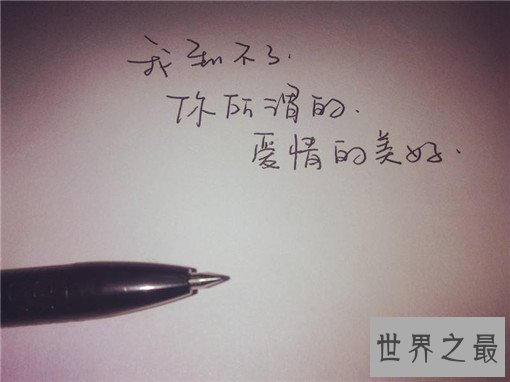 我到不了.
你所谓的.
爱情的美好.
世界之最